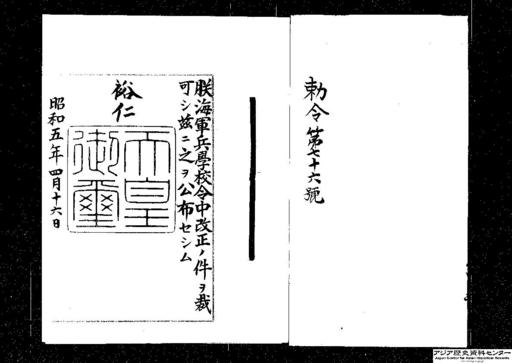 勅令第七十六號
朕海軍兵學校令中改正ノ件ヲ裁
可シ玆ニ之ヲ公布セシム
裕仁
天皇
御璽
昭和五年四月十六日
アジア歴史資料センター
Japan Center for Asian Historical Records